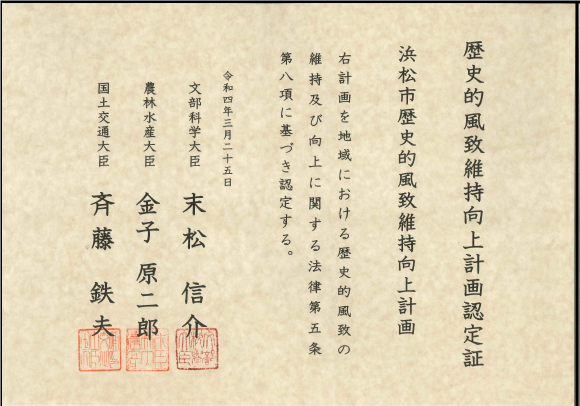 歴史的風致維持向上計画認定証
浜松市歴史的風致維持向上計画
右計画を地域における歴史的風致の
維持及び向上に関する法律第五条
第八項に基づき認定する。
令和四年三月二十五日
文部科学大臣 末松 信介
農林水産大臣 金子 原二郎
国土交通大臣 斉藤 鉄夫